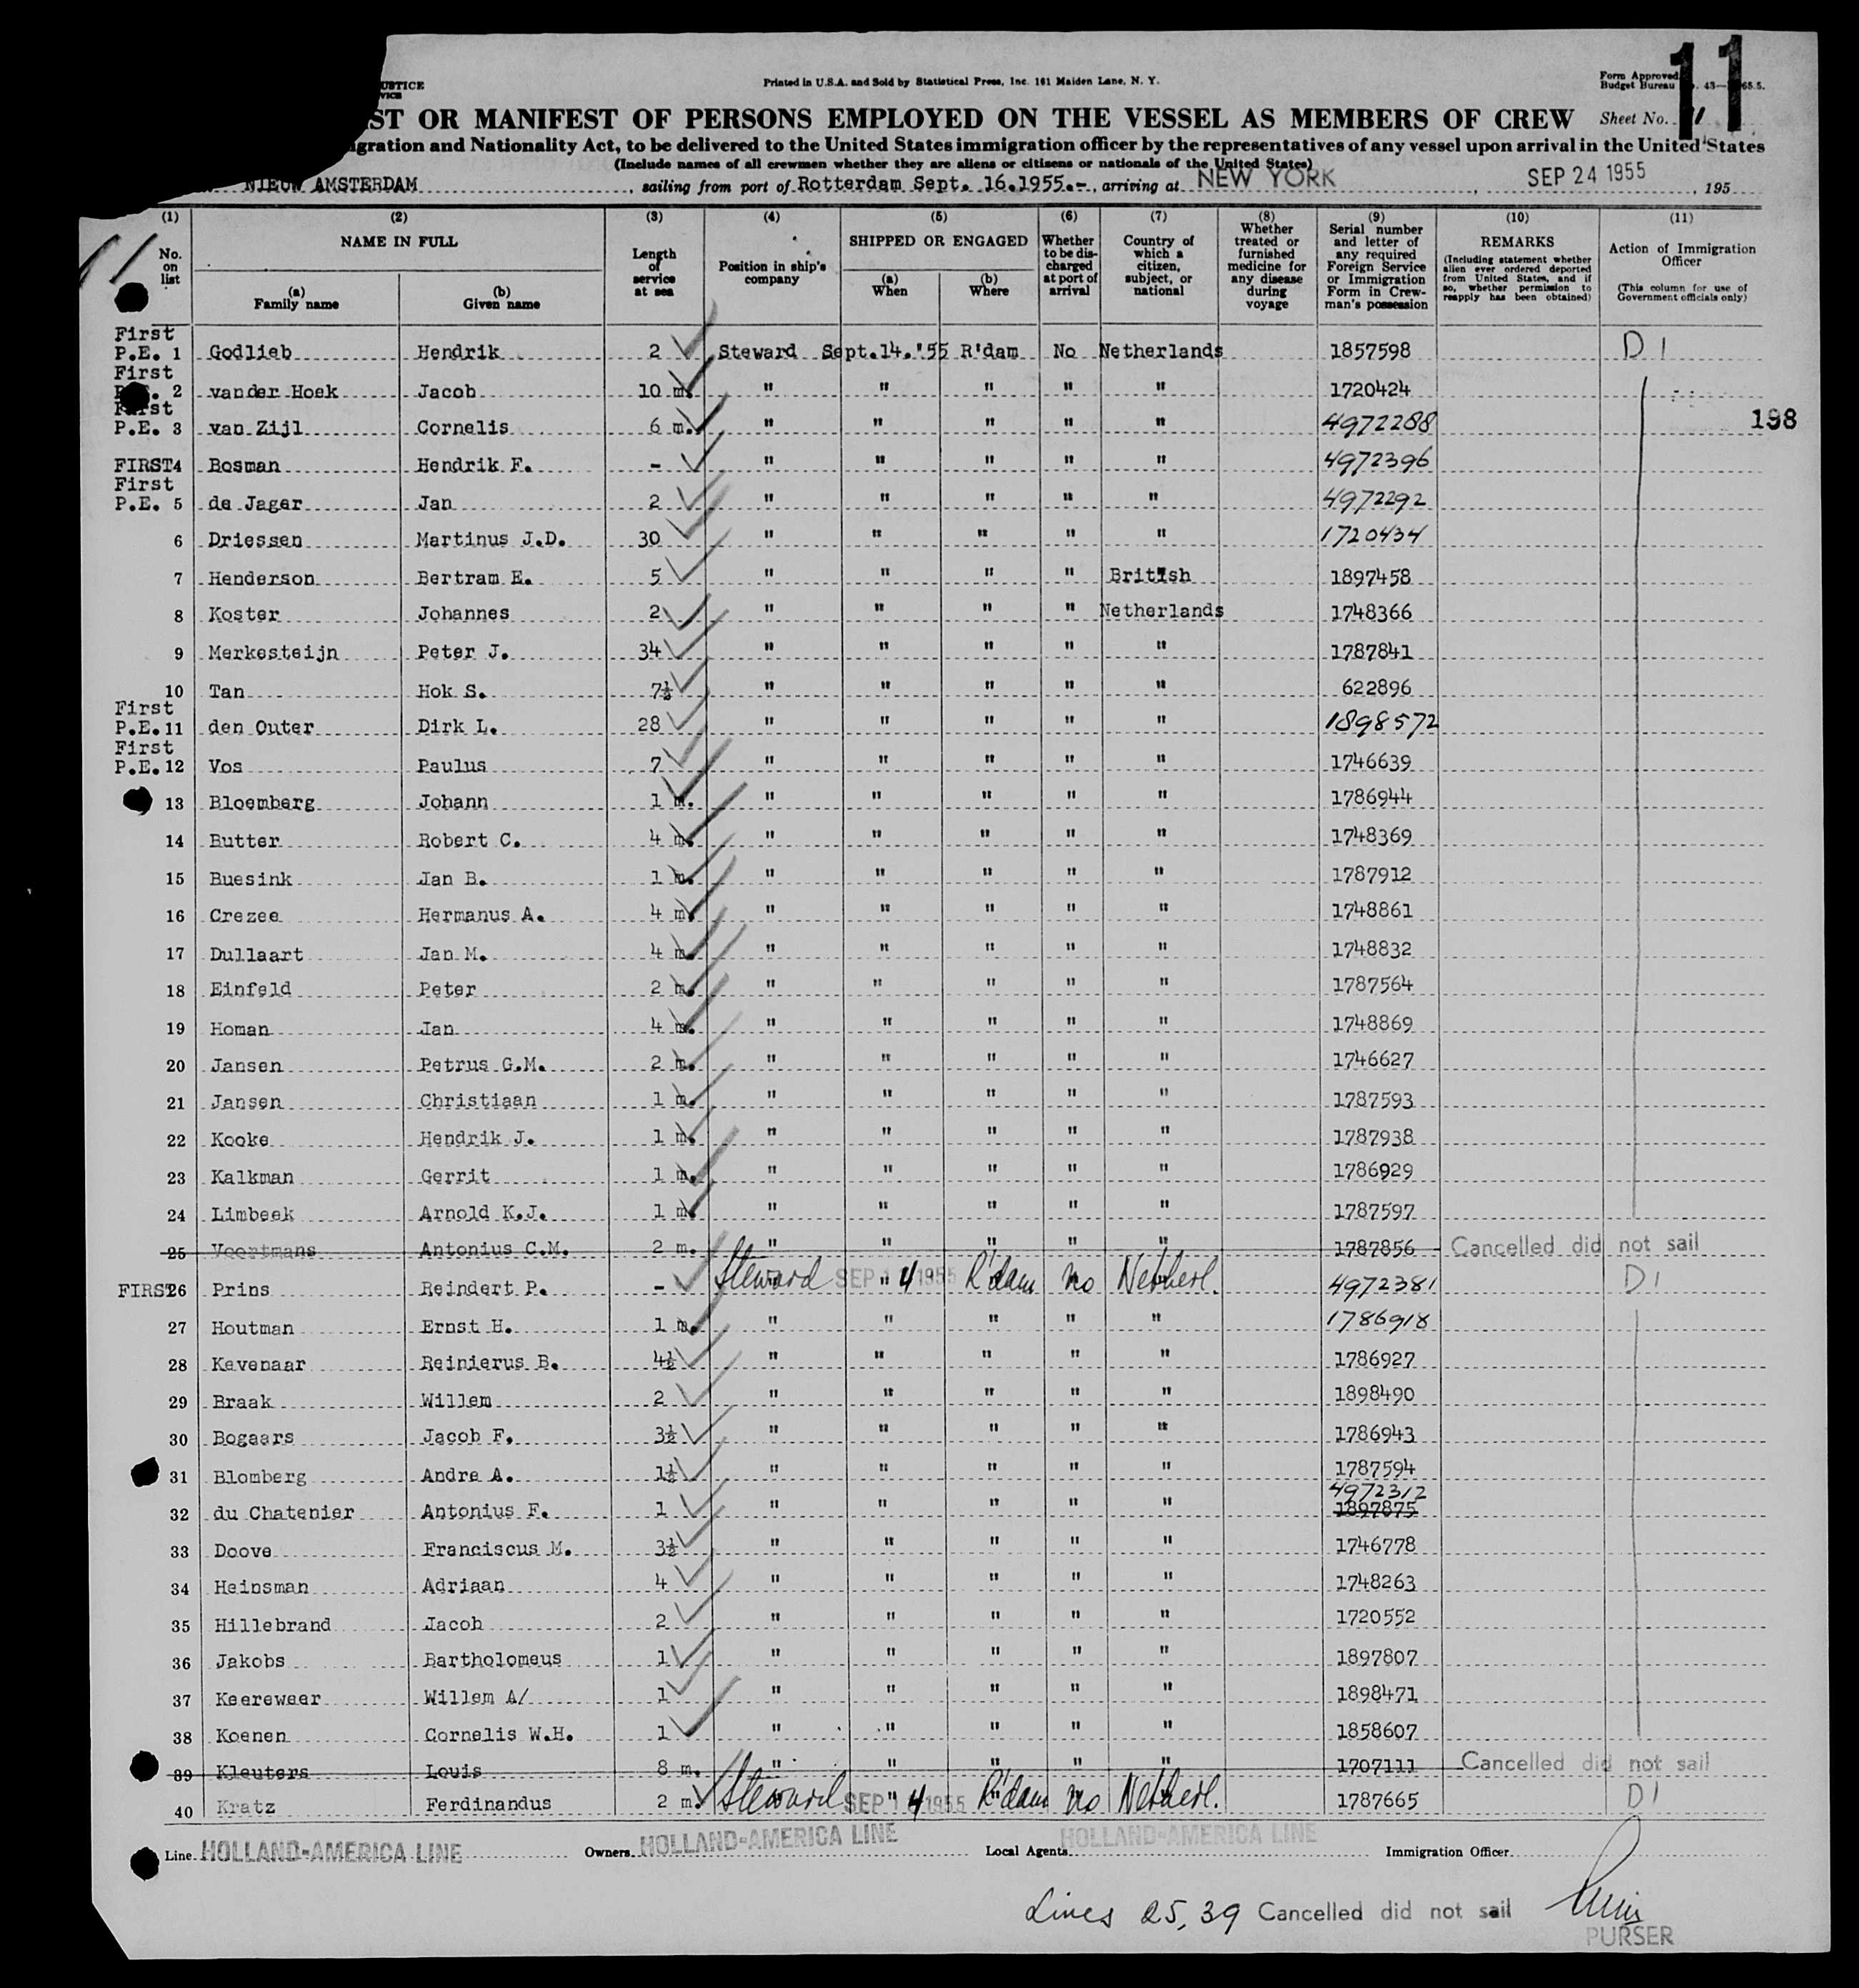 USTICE
VICE
Printed in U.S.A. and Sold by Statistical Press, Inc. 161 Maiden Lane, N. Y.
Form Approved
Budget Bureau 43— 65.5.
11
ST OR MANIFEST OF PERSONS EMPLOYED ON THE VESSEL AS MEMBERS OF CREW Sheet No.
igration and Nationality Act, to be delivered to the United States immigration officer by the representatives of any vessel upon arrival in the United States
(Include names of all crewmen whether they are aliens or citizens or nationals of the United States)
NIEUW AMSTERDAM, sailing from port of Rotterdam Sept. 16.1955.-, arriving at NEW YORK, SEP 24 1955, 195
11
(1) No. on list
(2) NAME IN FULL (a) Family name (b) Given name
(3) Length of service at sea
(4) Position in ship's company
(5) SHIPPED OR ENGAGED (a) When (b) Where
(6) Whether to be discharged at port of arrival
(7) Country of which a citizen, subject, or national
(8) Whether treated or furnished medicine for any disease during voyage
(9) Serial number and letter of any required Foreign Service or Immigration Form in Crewman's possession
(10) REMARKS (Including statement whether alien ever ordered deported from United States, and if so, whether permission to reapply has been obtained)
(11) Action of Immigration Officer (This column for use of Government officials only)
First P.E. 1 Godlieb Hendrik 2 Steward Sept.14.'55 R'dam No Netherlands 1857598 D 1
First 2 van der Hoek Jacob 10 m. " " " " " 1720424
198
First P.E. 3 van Zijl Cornelis 6 m. " " " " " 4972288
FIRST 4 Bosman Hendrik F. - " " " " " 4972396
First P.E. 5 de Jager Jan 2 " " " " " 4972292
6 Driessen Martinus J.D. 30 " " " " " 1720434
7 Henderson Bertram E. 5 " " " " British 1897458
8 Koster Johannes 2 " " " " Netherlands 1748366
9 Merkesteijn Peter J. 34 " " " " " 1787841
10 Tan Hok S. 7½ " " " " " 622896
First P.E. 11 den Outer Dirk L. 28 " " " " " 1898572
First P.E. 12 Vos Paulus 7 " " " " " 1746639
13 Bloemberg Johann 1 m. " " " " " 1786944
14 Butter Robert C. 4 m. " " " " " 1748369
15 Buesink Jan B. 1 m. " " " " " 1787912
16 Crezee Hermanus A. 4 m. " " " " " 1748861
17 Dullaart Jan M. 4 m. " " " " " 1748832
18 Einfeld Peter 2 m. " " " " " 1787564
19 Homan Jan 4 m. " " " " " 1748869
20 Jansen Petrus G.M. 2 m. " " " " " 1746627
21 Jansen Christiaan 1 m. " " " " " 1787593
22 Kooke Hendrik J. 1 m. " " " " " 1787938
23 Kalkman Gerrit 1 m. " " " " " 1786929
24 Limbeek Arnold K.J. 1 m. " " " " " 1787597
25 Voortmans Antonius C.M. 2 m. " " " " " 1787856 Cancelled did not sail
FIRST 26 Prins Reindert P. - Steward SEP 14 1955 R'dam no Netherl. 4972381 D 1
27 Houtman Ernst H. 1 m. " " " " " 1786918
28 Kevenaar Reinierus B. 4½ " " " " " 1786927
29 Braak Willem 2 " " " " " 1898490
30 Bogaars Jacob F. 3½ " " " " " 1786943
31 Blomberg Andre A. 1½ " " " " " 1787594
4972312
32 du Chatenier Antonius F. 1 " " " " " 1897875
33 Doove Franciscus M. 3½ " " " " " 1746778
34 Heinsman Adriaan 4 " " " " " 1748263
35 Hillebrand Jacob 2 " " " " " 1720552
36 Jakobs Bartholomeus 1 " " " " " 1897807
37 Keereweer Willem A/ 1 " " " " " 1898471
38 Koenen Cornelis W.H. 1 " " " " " 1858607
39 Kleuters Louis 8 m. " " " " " 1707111 Cancelled did not sail
40 Kratz Ferdinandus 2 m. Steward SEP 14 1955 R'dam no Netherl. 1787665 D 1
Line HOLLAND-AMERICA LINE Owners HOLLAND-AMERICA LINE Local Agents HOLLAND-AMERICA LINE Immigration Officer
Lines 25, 39 Cancelled did not sail
PURSER